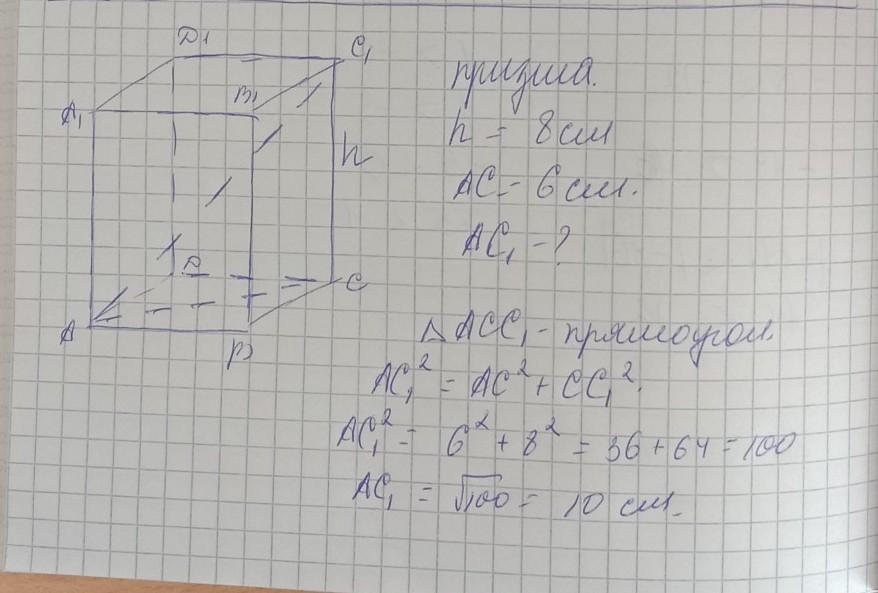 D1
C1
B1
A1
h
D
C
A
B
призма.
h = 8см
AC = 6 см.
AC1 - ?
△ ACC1 - прямоугол.
AC1² = AC² + CC1².
AC1² = 6² + 8² = 36 + 64 = 100
AC1 = √100 = 10 см.